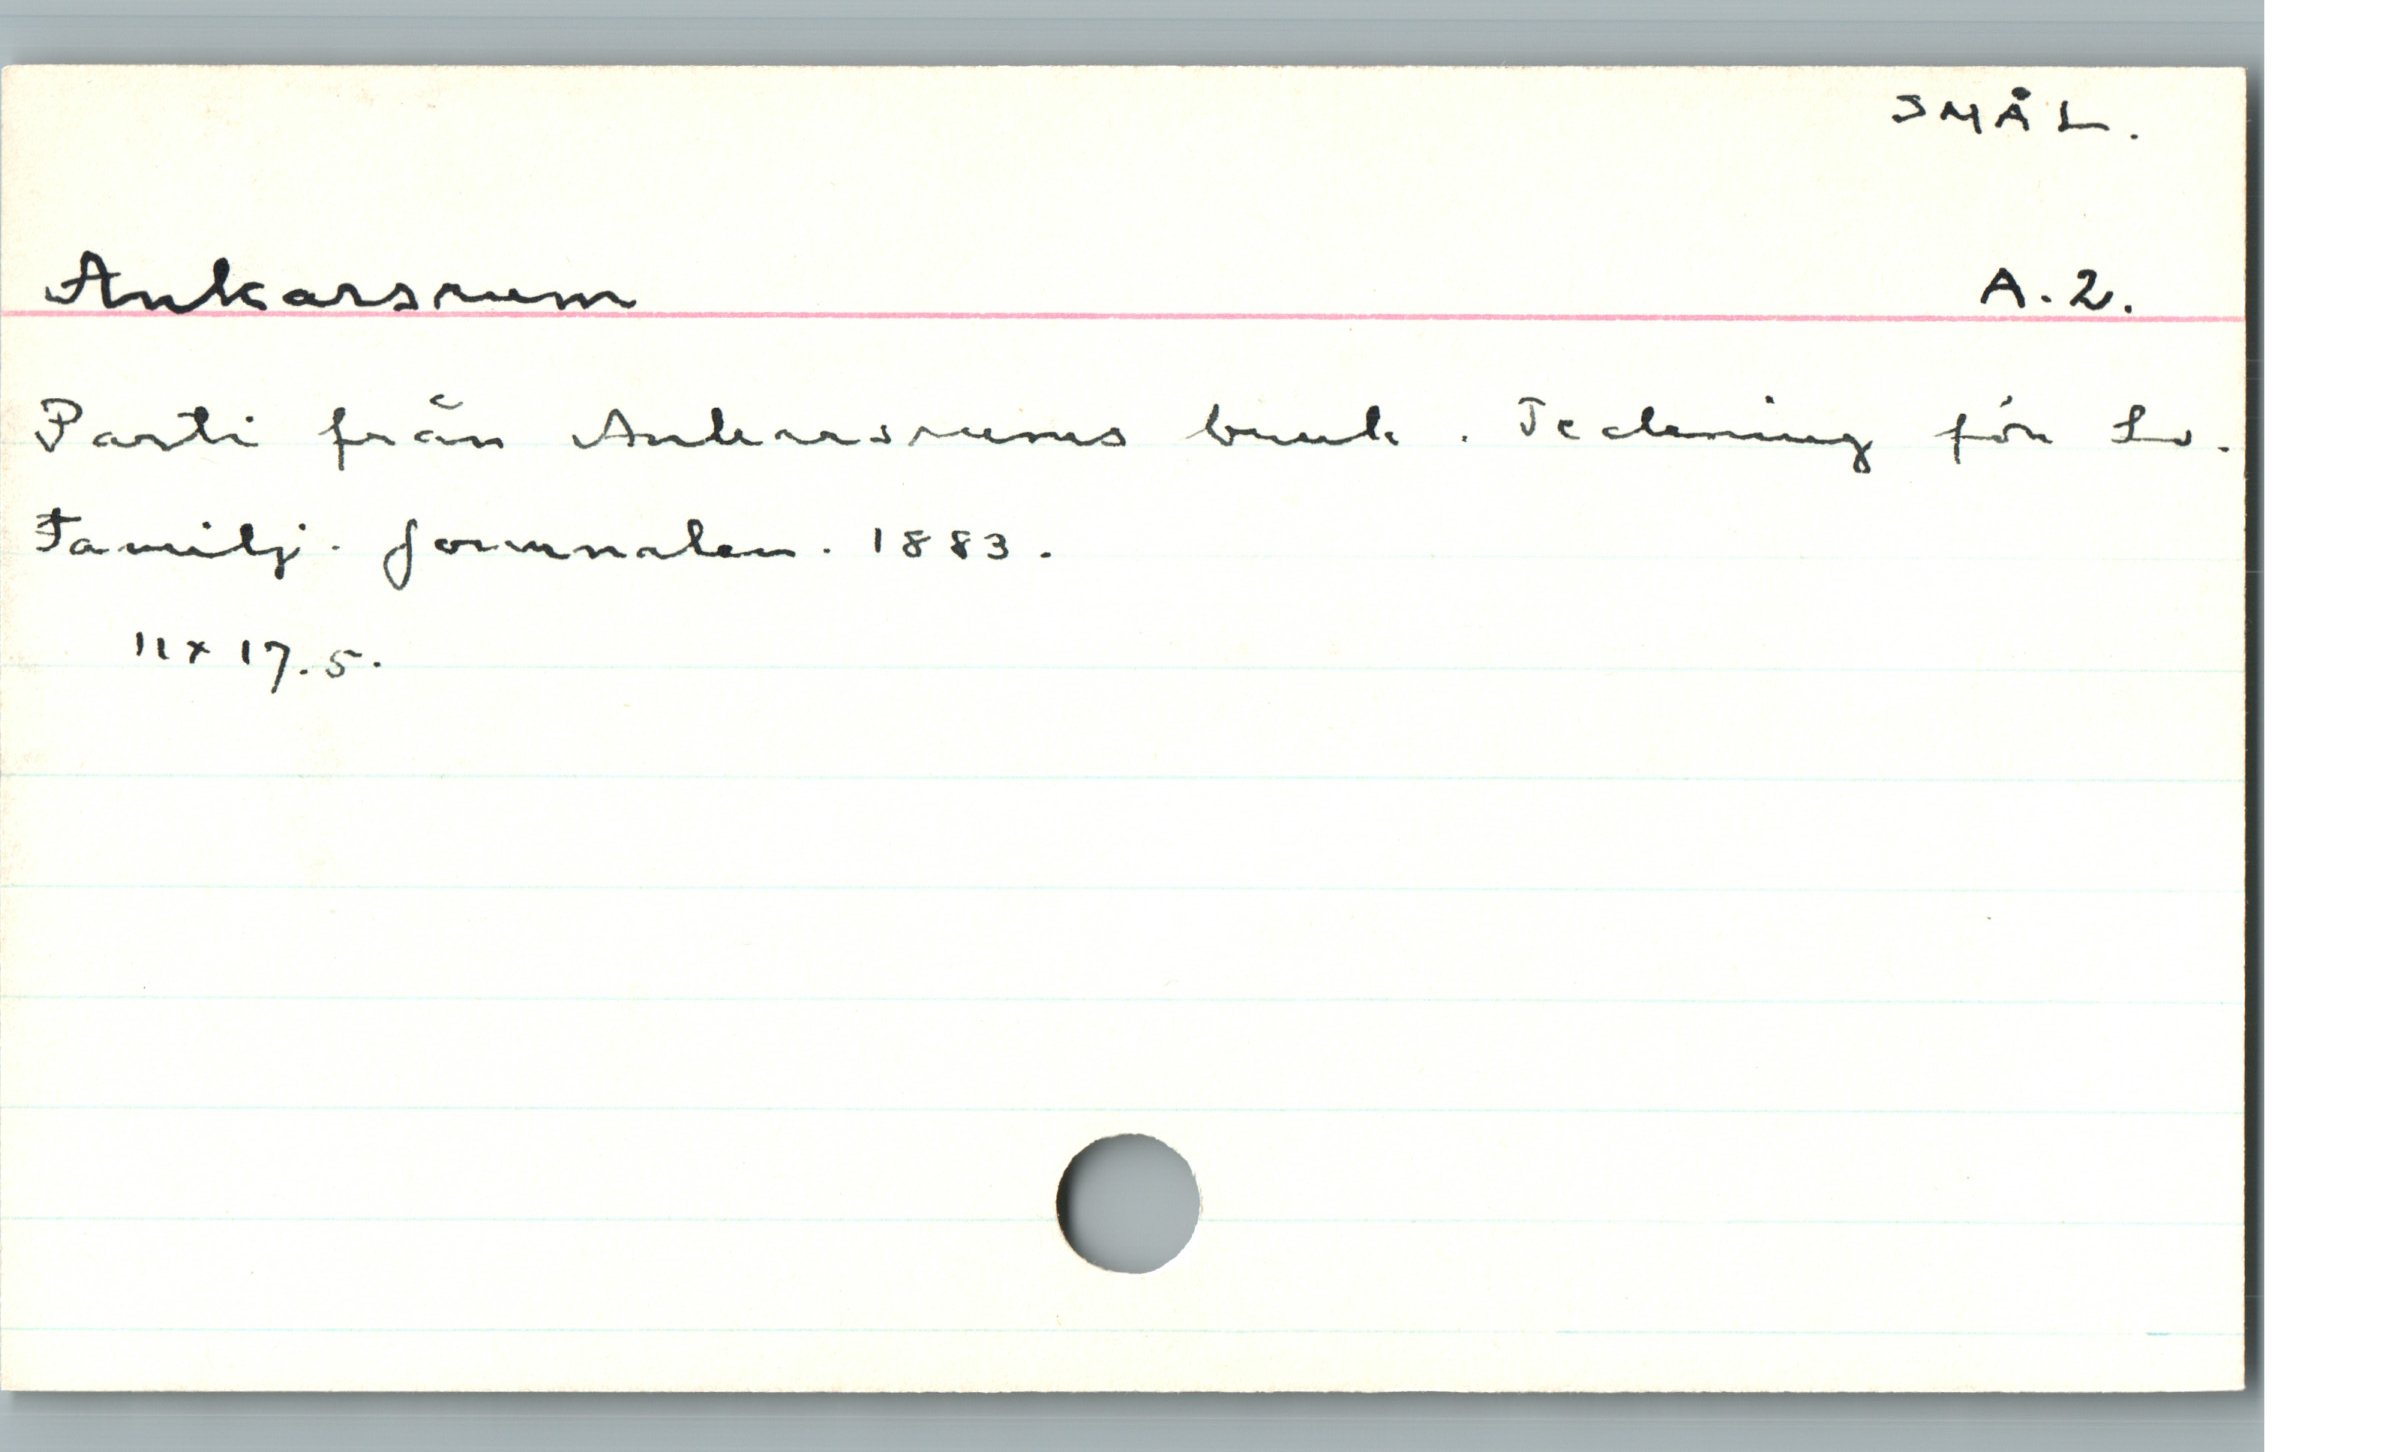 SMÅL.
Ankarsrum A.2.
Parti från Ankarsrums bruk. Teckning för Sv.
Familj. Journalen. 1883.
11x17.5.